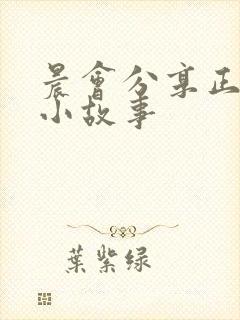 晨會分享正
小故事
葉紫绿